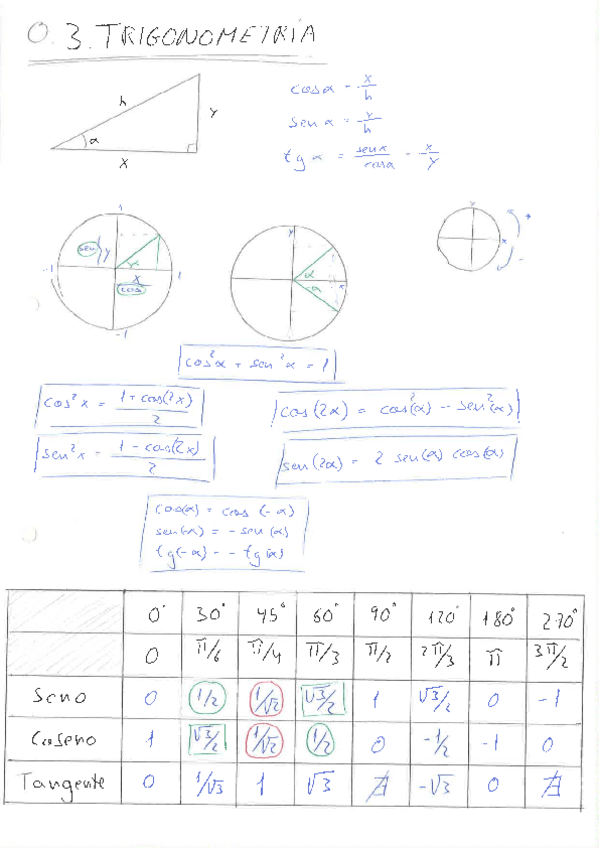 0.3. TRIGONOMETRIA
h
y
α
x
cos α = x/h
sen α = y/h
tg α = sen α/cos α = x/y
1
sen
y
α
-1
x
1
cos
-1
y
α
-α
x
y
+
x
-
cos²α + sen²α = 1
cos²x = 1 + cos(2x)/2
cos(2α) = cos²(α) - sen²(α)
sen²x = 1 - cos(2x)/2
sen(2α) = 2 sen(α) cos(α)
cos(α) = cos(-α)
sen(-α) = -sen(α)
tg(-α) = -tg(α)
0° 30° 45° 60° 90° 120° 180° 270°
0 π/6 π/4 π/3 π/2 2π/3 π 3π/2
Seno 0 1/2 1/√2 √3/2 1 √3/2 0 -1
Coseno 1 √3/2 1/√2 1/2 0 -1/2 -1 0
Tangente 0 1/√3 1 √3 ∄ -√3 0 ∄